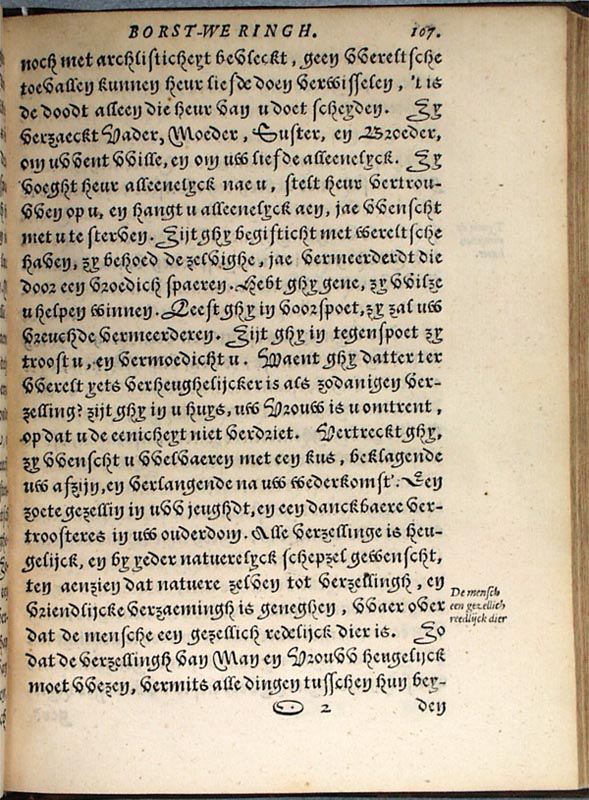 BORST-WERINGH. 107.
noch met archlisticheyt bevleckt, geen VVereltsche
toevallen kunnen heur liefde doen verwisselen, 't is
de doodt alleen die heur van u doet scheyden. Zy
verzaeckt Vader, Moeder, Suster, en Broeder,
om uVVent VVille, en om uw liefde alleenelyck. Zy
voeght heur alleenelyck nae u, stelt heur vertrou-
VVen op u, en hangt u alleenelyck aen, jae VVenscht
met u te sterven. Zijt ghy begifticht met wereltsche
haven, zy behoed de zelvighe, jae vermeerderdt die
door een vroedich spaeren. Hebt ghy gene, zy VVilze
u helpen winnen. Leeft ghy in voorspoet, zy zal uw
vreuchde vermeerderen. Zijt ghy in tegenspoet zy
troost u, en vermoedicht u. Waent ghy datter ter
VVerelt yets verheughelijcker is als zodanigen ver-
zelling? zijt ghy in u huys, uw Vrouw is u omtrent,
op dat u de eenicheyt niet verdriet. Vertreckt ghy,
zy VVenscht u VVelvaeren met een kus, beklagende
uw afzijn, en verlangende na uw wederkomst. Een
zoete gezellin in uVV jeughdt, en een danckbaere ver-
troosteres in uw ouderdom. Alle verzellinge is heu-
gelijck, en by yeder natuerelyck schepzel gewenscht,
ten aenzien dat natuere zelven tot verzellingh, en
vriendlijcke verzaemingh is geneghen, VVaer over
dat de mensche een gezellich redelijck dier is. Zo
De mensch
een gezellich
reedlijck dier
dat de verzellingh van Man en VrouVV heugelijck
moet VVezen, vermits alle dingen tusschen hun bey-
2 den